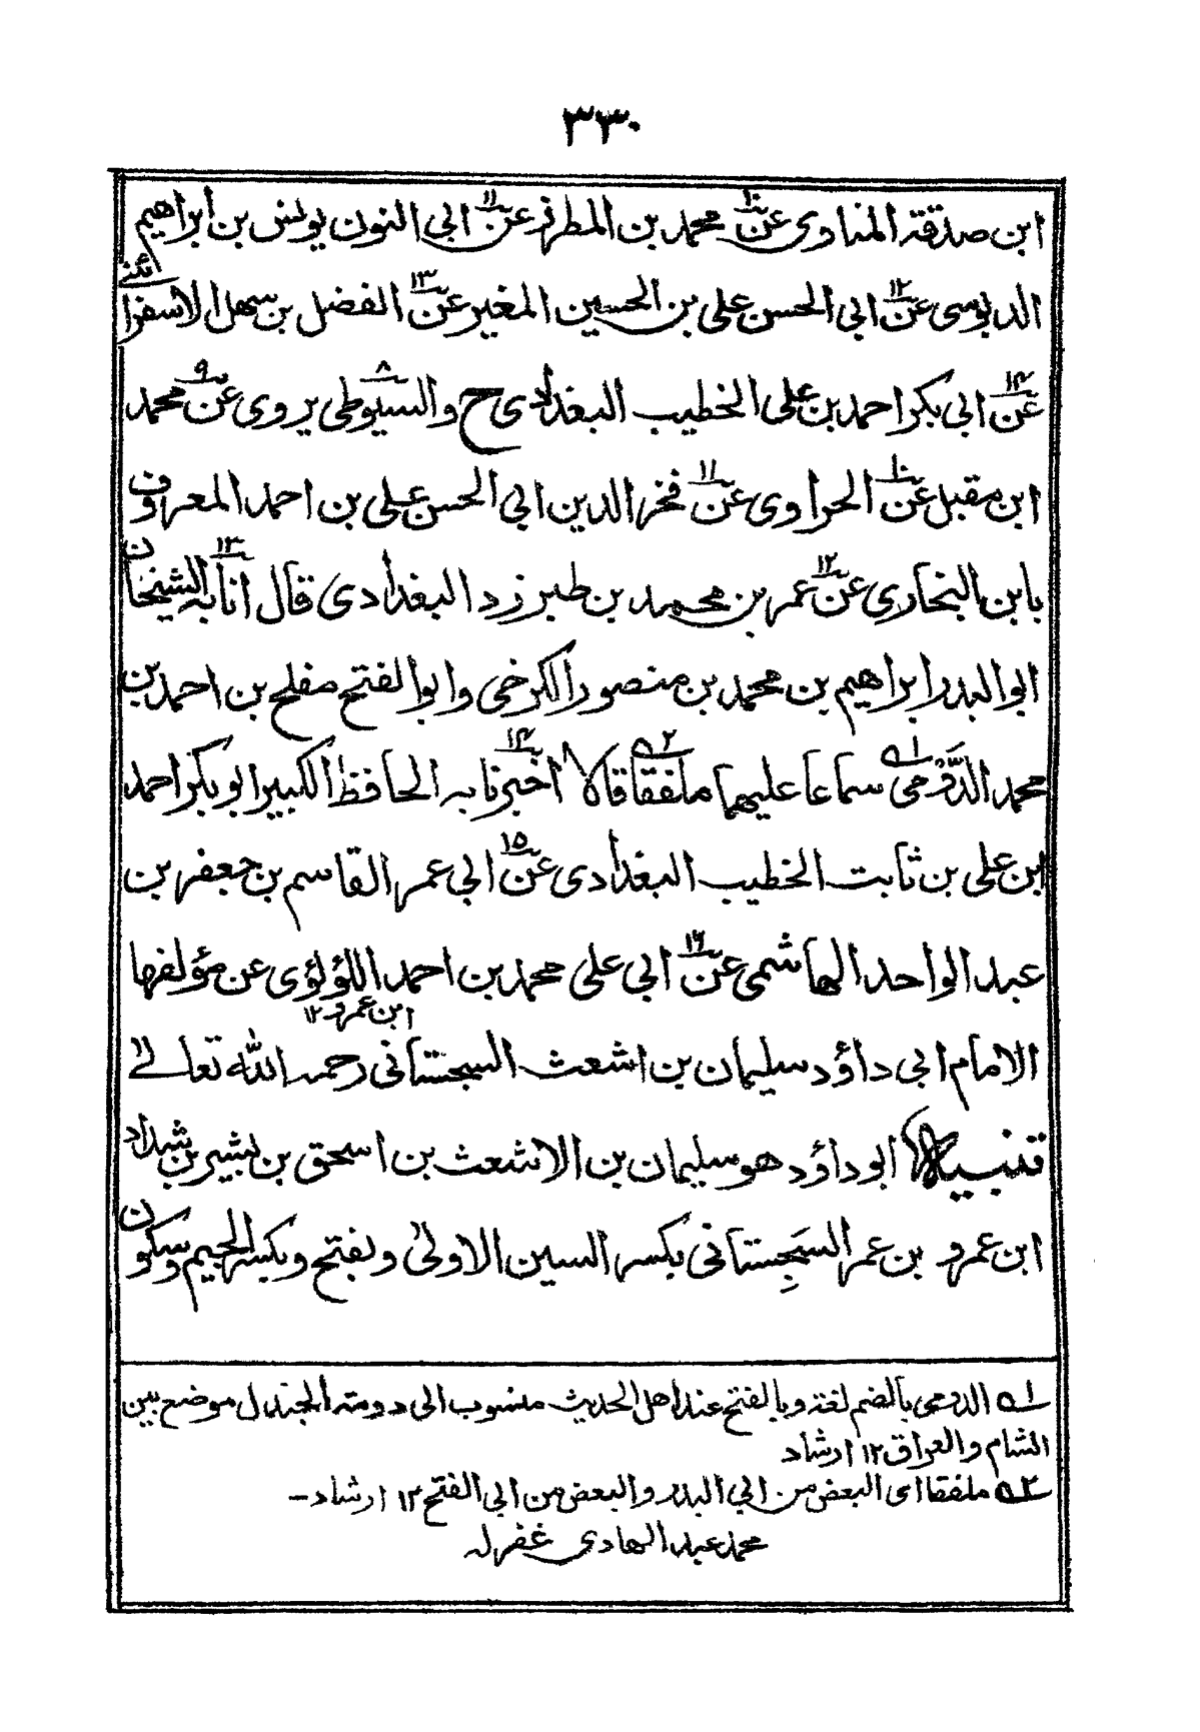 ٣٣٠
ابن صدقة المناوى عن١٠ محمد بن المطرز عن١١ ابى النون يونس بن ابراهيم
الدبوسى عن١٢ ابى الحسن على بن الحسين المغير عن١٣ الفضل بن سهل الاسفرائنى
عن١٤ ابى بكر احمد بن على الخطيب البغدادى ح والسيوطى٨ يروى عن٩ محمد
ابن مقبل عن١٠ الحراوى عن١١ فخر الدين ابى الحسن على بن احمد المعروف
بابن البخارى عن١٢ عمر بن محمد بن طبرزد البغدادى قال انا١٣ به الشيخان
ابو البدر ابراهيم بن محمد بن منصور الكرخى وابو الفتح مفلح بن احمد بن
محمد الدَّوْمى ١ـه سماعا عليهما ملفقا ٢ـه قالا اخبرنا١٤ به الحافظ الكبير ابو بكر احمد
ابن على بن ثابت الخطيب البغدادى عن١٥ ابى عمر القاسم بن جعفر بن
عبد الواحد الهاشمى عن١٦ ابى على محمد بن احمد اللؤلؤى عن مؤلفها
ابن عمرو ١٢
الامام ابى داؤد سليمان بن اشعث السجستانى رحمه الله تعالى
تنبيه ابو داؤد هو سليمان بن الاشعث بن اسحق بن بشير بن شداد
ابن عمرو بن عمر السَجِستانى بكسر السين الاولى وبفتح وبكسر الجيم وسكون
١ـه الدومى بالضم لغة وبالفتح عند اهل الحديث منسوب الى دومة الجندل موضع بين
الشام والعراق ١٢ ارشاد
٢ـه ملفقا اى البعض من ابى البدر والبعض من ابى الفتح ١٢ ارشاد-
محمد عبد الهادى غفر له